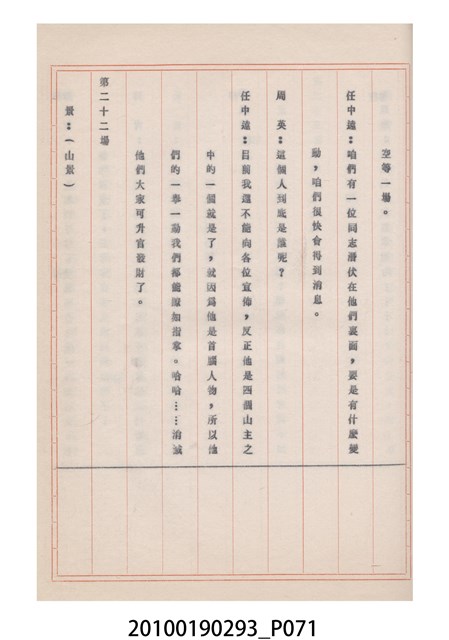 空等一場。
任中遠：咱們有一位同志潛伏在他們裏面，要是有什麼變
動，咱們很快會得到消息。
周　英：這個人到底是誰呢？
任中遠：目前我還不能向各位宣佈，反正他是四個山主之
中的一個就是了，就因為他是首腦人物，所以他
們的一舉一動我們都能瞭如指掌。哈哈……消滅
他們大家可升官發財了。
第二十二場
景：（山景）
20100190293_P071